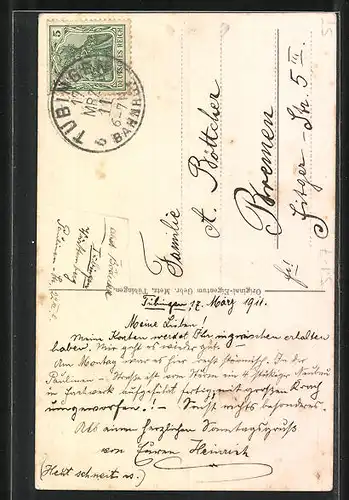 5
DEUTSCHES REICH
TÜBINGEN
17
MRZ
11
6-7
BAHNHOF
Familie
A. Böttcher
Bremen
Sitger-Str. 5 III.
Original-Eigentum Gebr. Metz, Tübingen.
Tübingen 17. März 1911.
Meine Lieben!
Meine Karten werdet Ihr inzwischen erhalten
haben. Mir geht es wieder gut.
Am Montag war es hier sehr stürmisch. In der
Paulinen-Straße ist vom Sturm ein 4 stöckiger Neubau
in Fachwerk aufgeführt fertig mit großem Krach
umgeworfen. !- Sonst nichts besonderes.
Als einen herzlichen Sonntagsgruß
von Euren Heinrich
(Heut schneit es.)